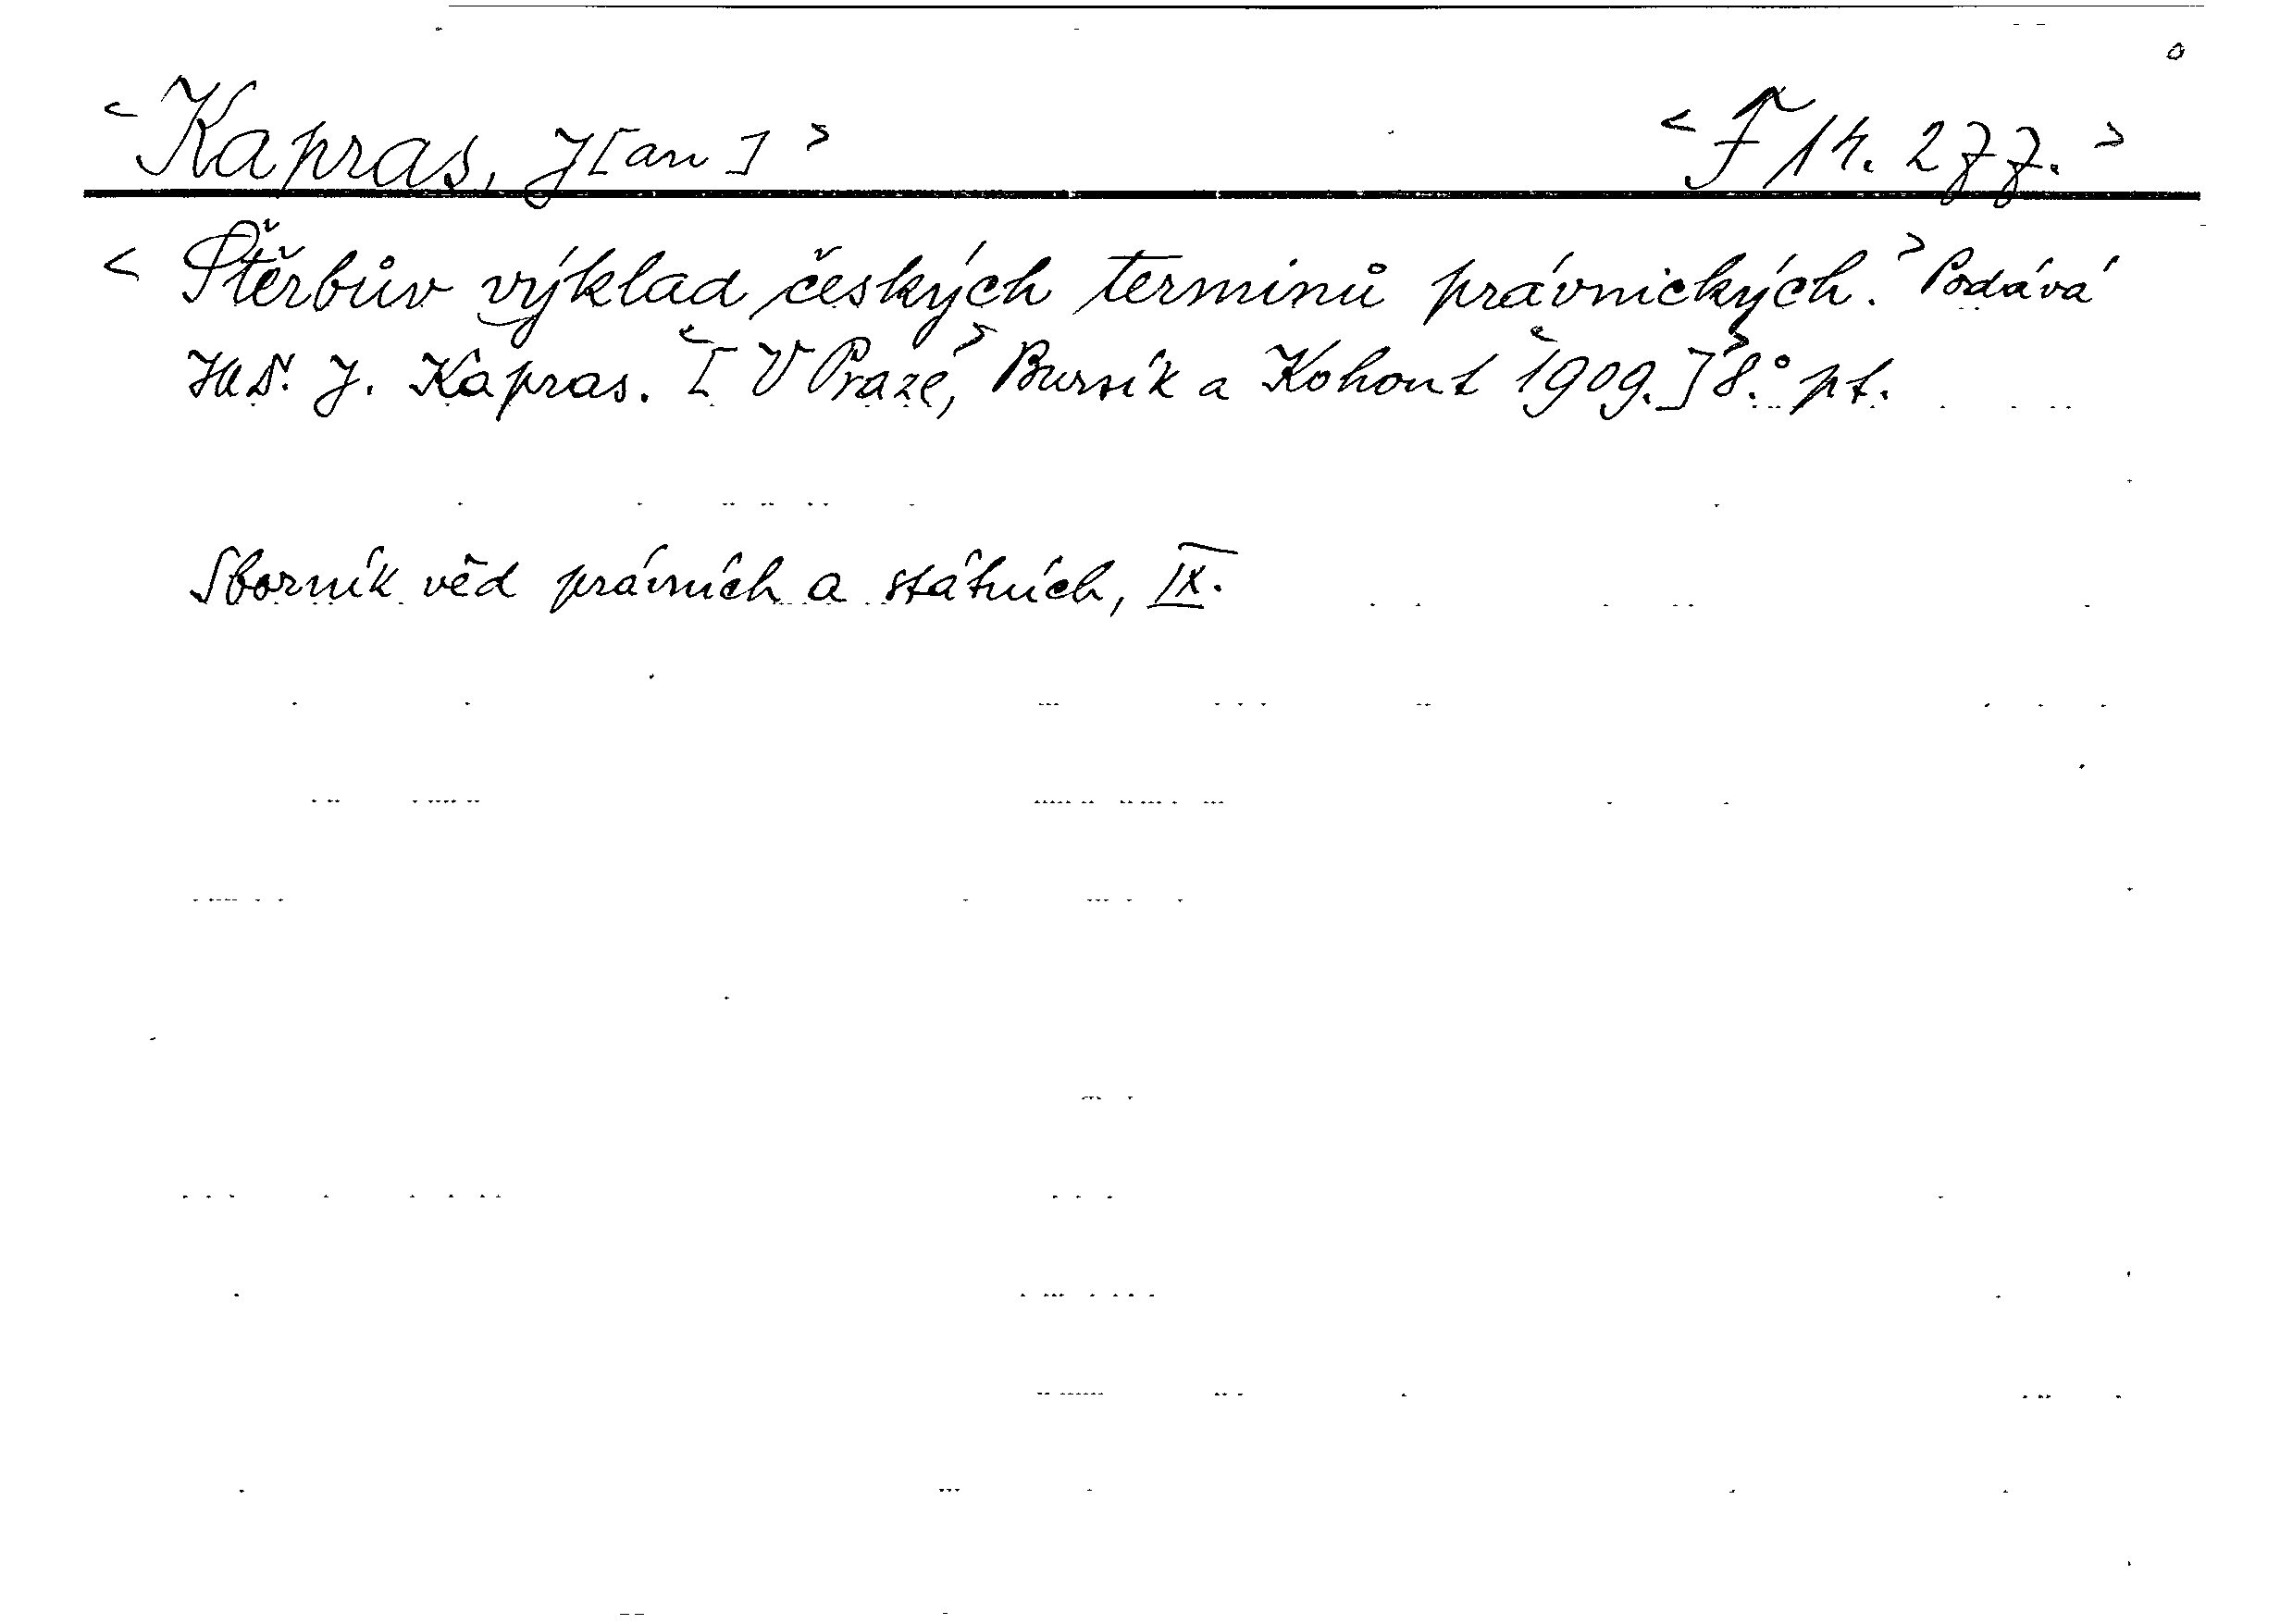 <Kapras, J[an]> <F 14. 277.>
<Štěrbův výklad českých terminů právnických.> Podává
JUD. J. Kapras. <[V Praze,> Bursík a Kohout <1909.]> 8.° pt.
Sborník věd právních a státních, IX.